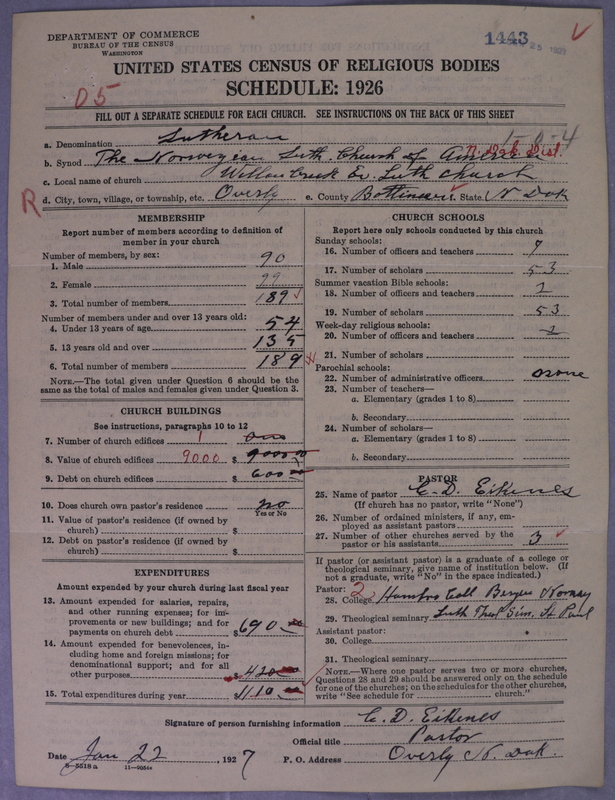 DEPARTMENT OF COMMERCE
BUREAU OF THE CENSUS
WASHINGTON
1443
UNITED STATES CENSUS OF RELIGIOUS BODIES
SCHEDULE: 1926
D5
FILL OUT A SEPARATE SCHEDULE FOR EACH CHURCH. SEE INSTRUCTIONS ON THE BACK OF THIS SHEET
1-0-4
a. Denomination Lutheran
b. Synod The Norwegian Luth. Church of America N. Dak. Dist.
c. Local name of church Willow Creek Ev. Luth Church
R
d. City, town, village, or township, etc. Overly e. County Bottineau f. State N Dak
MEMBERSHIP
Report number of members according to definition of member in your church
Number of members, by sex:
1. Male 90
2. Female 99
3. Total number of members 189
Number of members under and over 13 years old:
4. Under 13 years of age 54
5. 13 years old and over 135
6. Total number of members 189
NOTE.—The total given under Question 6 should be the same as the total of males and females given under Question 3.
CHURCH BUILDINGS
See instructions, paragraphs 10 to 12
7. Number of church edifices 1 one
8. Value of church edifices 9000 $ 9000 00
9. Debt on church edifices $ 600
10. Does church own pastor's residence? no
Yes or No
11. Value of pastor's residence (if owned by church) $
12. Debt on pastor's residence (if owned by church) $
EXPENDITURES
Amount expended by your church during last fiscal year
13. Amount expended for salaries, repairs, and other running expenses; for improvements or new buildings; and for payments on church debt $ 690
14. Amount expended for benevolences, including home and foreign missions; for denominational support; and for all other purposes $ 420
15. Total expenditures during year $ 1110
CHURCH SCHOOLS
Report here only schools conducted by this church
Sunday schools:
16. Number of officers and teachers 7
17. Number of scholars 53
Summer vacation Bible schools:
18. Number of officers and teachers 2
19. Number of scholars 53
Week-day religious schools:
20. Number of officers and teachers
21. Number of scholars
Parochial schools:
22. Number of administrative officers none
23. Number of teachers—
a. Elementary (grades 1 to 8)
b. Secondary
24. Number of scholars—
a. Elementary (grades 1 to 8)
b. Secondary
PASTOR
25. Name of pastor C. D. Eikenes
(If church has no pastor, write "None")
26. Number of ordained ministers, if any, employed as assistant pastors
27. Number of other churches served by the pastor or his assistants 3
If pastor (or assistant pastor) is a graduate of a college or theological seminary, give name of institution below. (If not a graduate, write "No" in the space indicated.)
Pastor: 2
28. College Hambro Coll Bergen Norway
29. Theological seminary Luth Theol Sem. St Paul
Assistant pastor:
30. College
31. Theological seminary
NOTE.—Where one pastor serves two or more churches, Questions 28 and 29 should be answered only on the schedule for one of the churches; on the schedules for the other churches, write "See schedule for church."
Signature of person furnishing information C. D. Eikenes
Official title Pastor
Date Jan 22, 1927 P. O. Address Overly N. Dak.
8-5518a